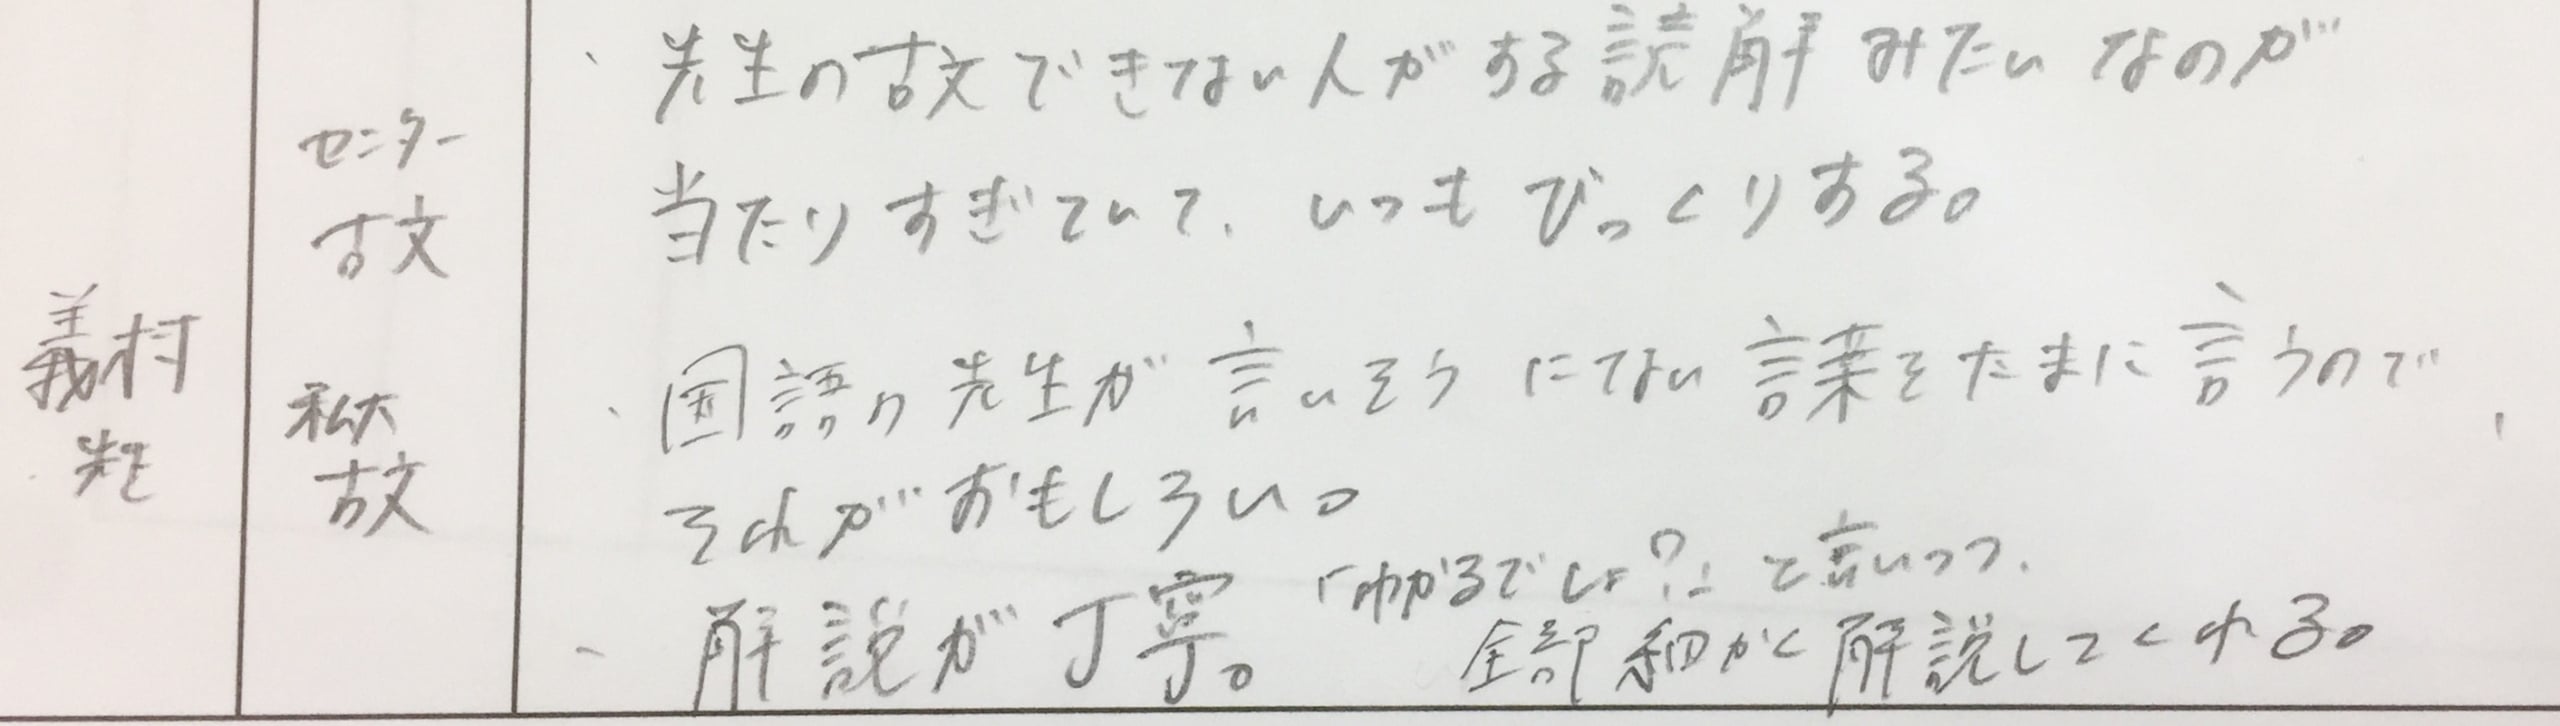 義村
先生
センター
古文
私大
古文
・先生の古文できない人がする読解みたいなのが
当たりすぎていて、いつもびっくりする。
・国語の先生が言いそうにない言葉をたまに言うので、
それがおもしろい。
・解説が丁寧。「わかるでしょ?」と言いつつ、
全部細かく解説してくれる。